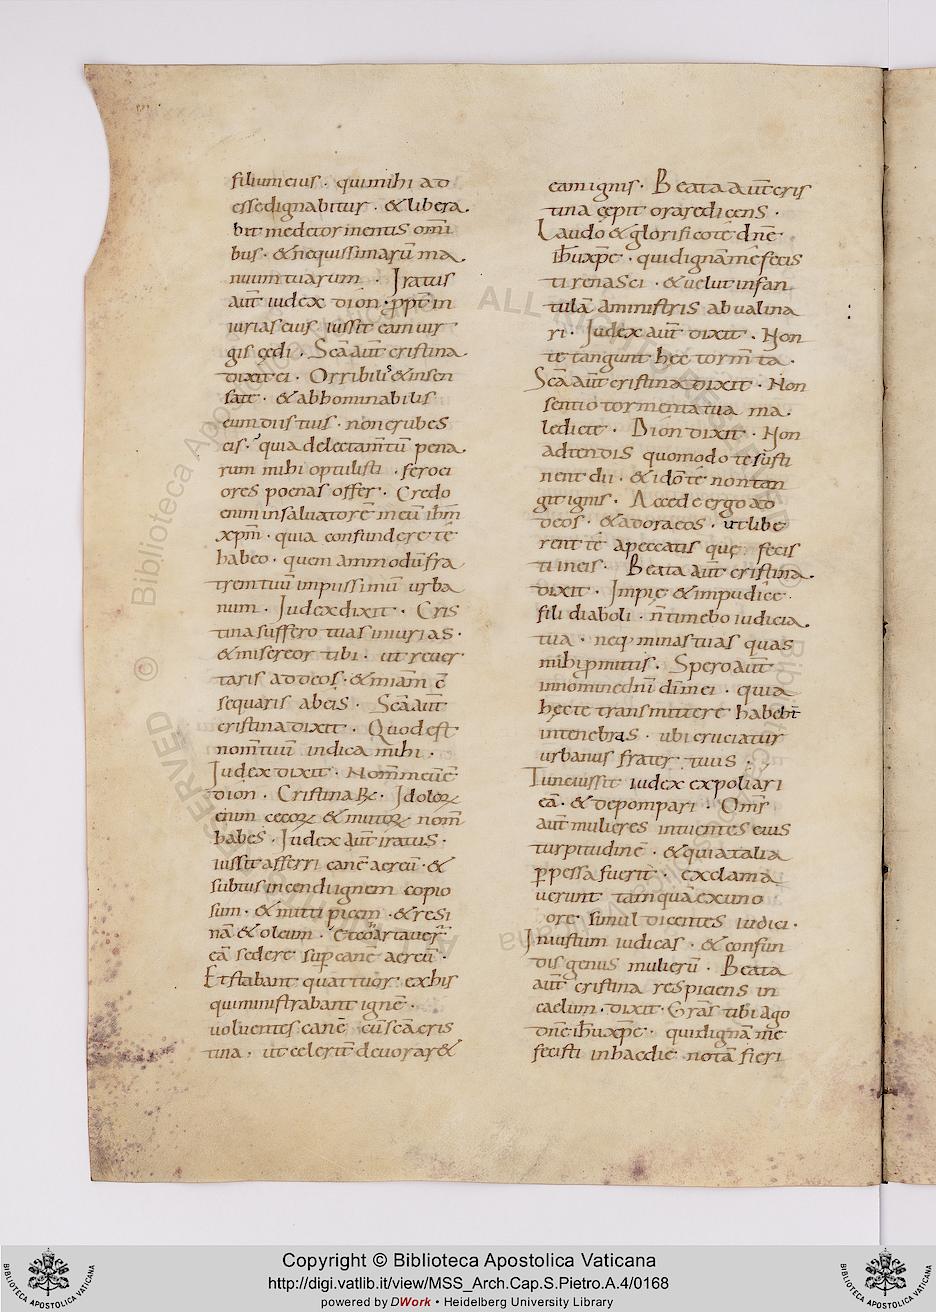 filium eius · qui mihi ad
esse dignabitur · & libera
bit me detormentis omī
bus · & nequissimarū ma
nuum tuarum · Iratus
aūt iudex dion · ꝓpt̄ in
iurias eius iussit eam uir
gis cędi · Sc̄a aūt cristina
dixit ei · Orribilis & insen
sate · & abhominabilis
cum diis tuis · non erubes
cis · quia delectam̄tū pena
rum mihi optulisti · feroci
ores poenas offer · Credo
enim insaluatorē meū ih̄m
xp̄m · quia confundere tē
habeo · quem ammodū fra
trem tuū impiissimū urba
num · Iudex dixit · Cris
tina suffero tuas iniurias ·
& misereor tibi · ut reuer
taris ad deos · & miam̄ c̄
sequaris abeis · Sc̄a aūt
cristina dixit · Quod est
nom̄ tuū indica mihi ·
Iudex dixit · Nom̄ meū ē
dion · Cristina R̄ · Idoloꝝ
enim cecoꝝ & mutoꝝ nom̄
habes · Iudex aūt iratus ·
iussit afferri canē aereū · &
subtus incendi ignem copio
sum · & mitti picem · & resi
nā & oleum ·
eā sedere suꝑ canē aereū ·
Et stabant quattuor exhis
qui ministrabant ignē ·
uoluentes canē cū sc̄a cris
tina · ut celerit̄ deuorar&
eam ignis · Beata aūt cris
tina cępit orare dicens ·
Laudo & glorifico tē dn̄e
ih̄u xp̄e · qui dignā mē fecis
ti renasci · & uelut infan
tulā aministris ab ualina
ri · Iudex aūt dixit · Non
te tangunt hec torm̄ta ·
Sc̄a aūt cristina dixit · Non
sentio tormenta tua ma
ledicte · Dion dixit · Non
adtendis quomodo te susti
nent dii · & idō te non tan
git ignis · Accede ergo ad
deos · & adora eos · ut libe
rent tē apeccatis quę fecis
ti in eis · Beata aūt cristina
dixit · Impię & impudice
fili diaboli · n̄ timebo iudicia
tua · neq· minas tuas quas
mihi ꝓmittis · Spero aūt
innomine dn̄i dī mei · quia
hec te transmittere habebt̄
intenebras · ubi cruciatur
urbanus frater tuus ·
Tunc iussit iudex expoliari
eā · & depompari · Oms̄
aūt mulieres intuentes eius
turpitudinē · & quia talia
ꝑpessa fuerit · exclama
uerunt tamquā ex uno
ore simul dicentes iudici ·
Iniustum iudicas · & confun
dis genus mulierū · Beata
aūt cristina respiciens in
caelum · dixit · Gras̄ tibi ago
dn̄e ih̄u xp̄e · qui dignā mē
fecisti inhac die notā fieri
Copyright © Biblioteca Apostolica Vaticana
http://digi.vatlib.it/view/MSS_Arch.Cap.S.Pietro.A.4/0168
powered by DWork • Heidelberg University Library